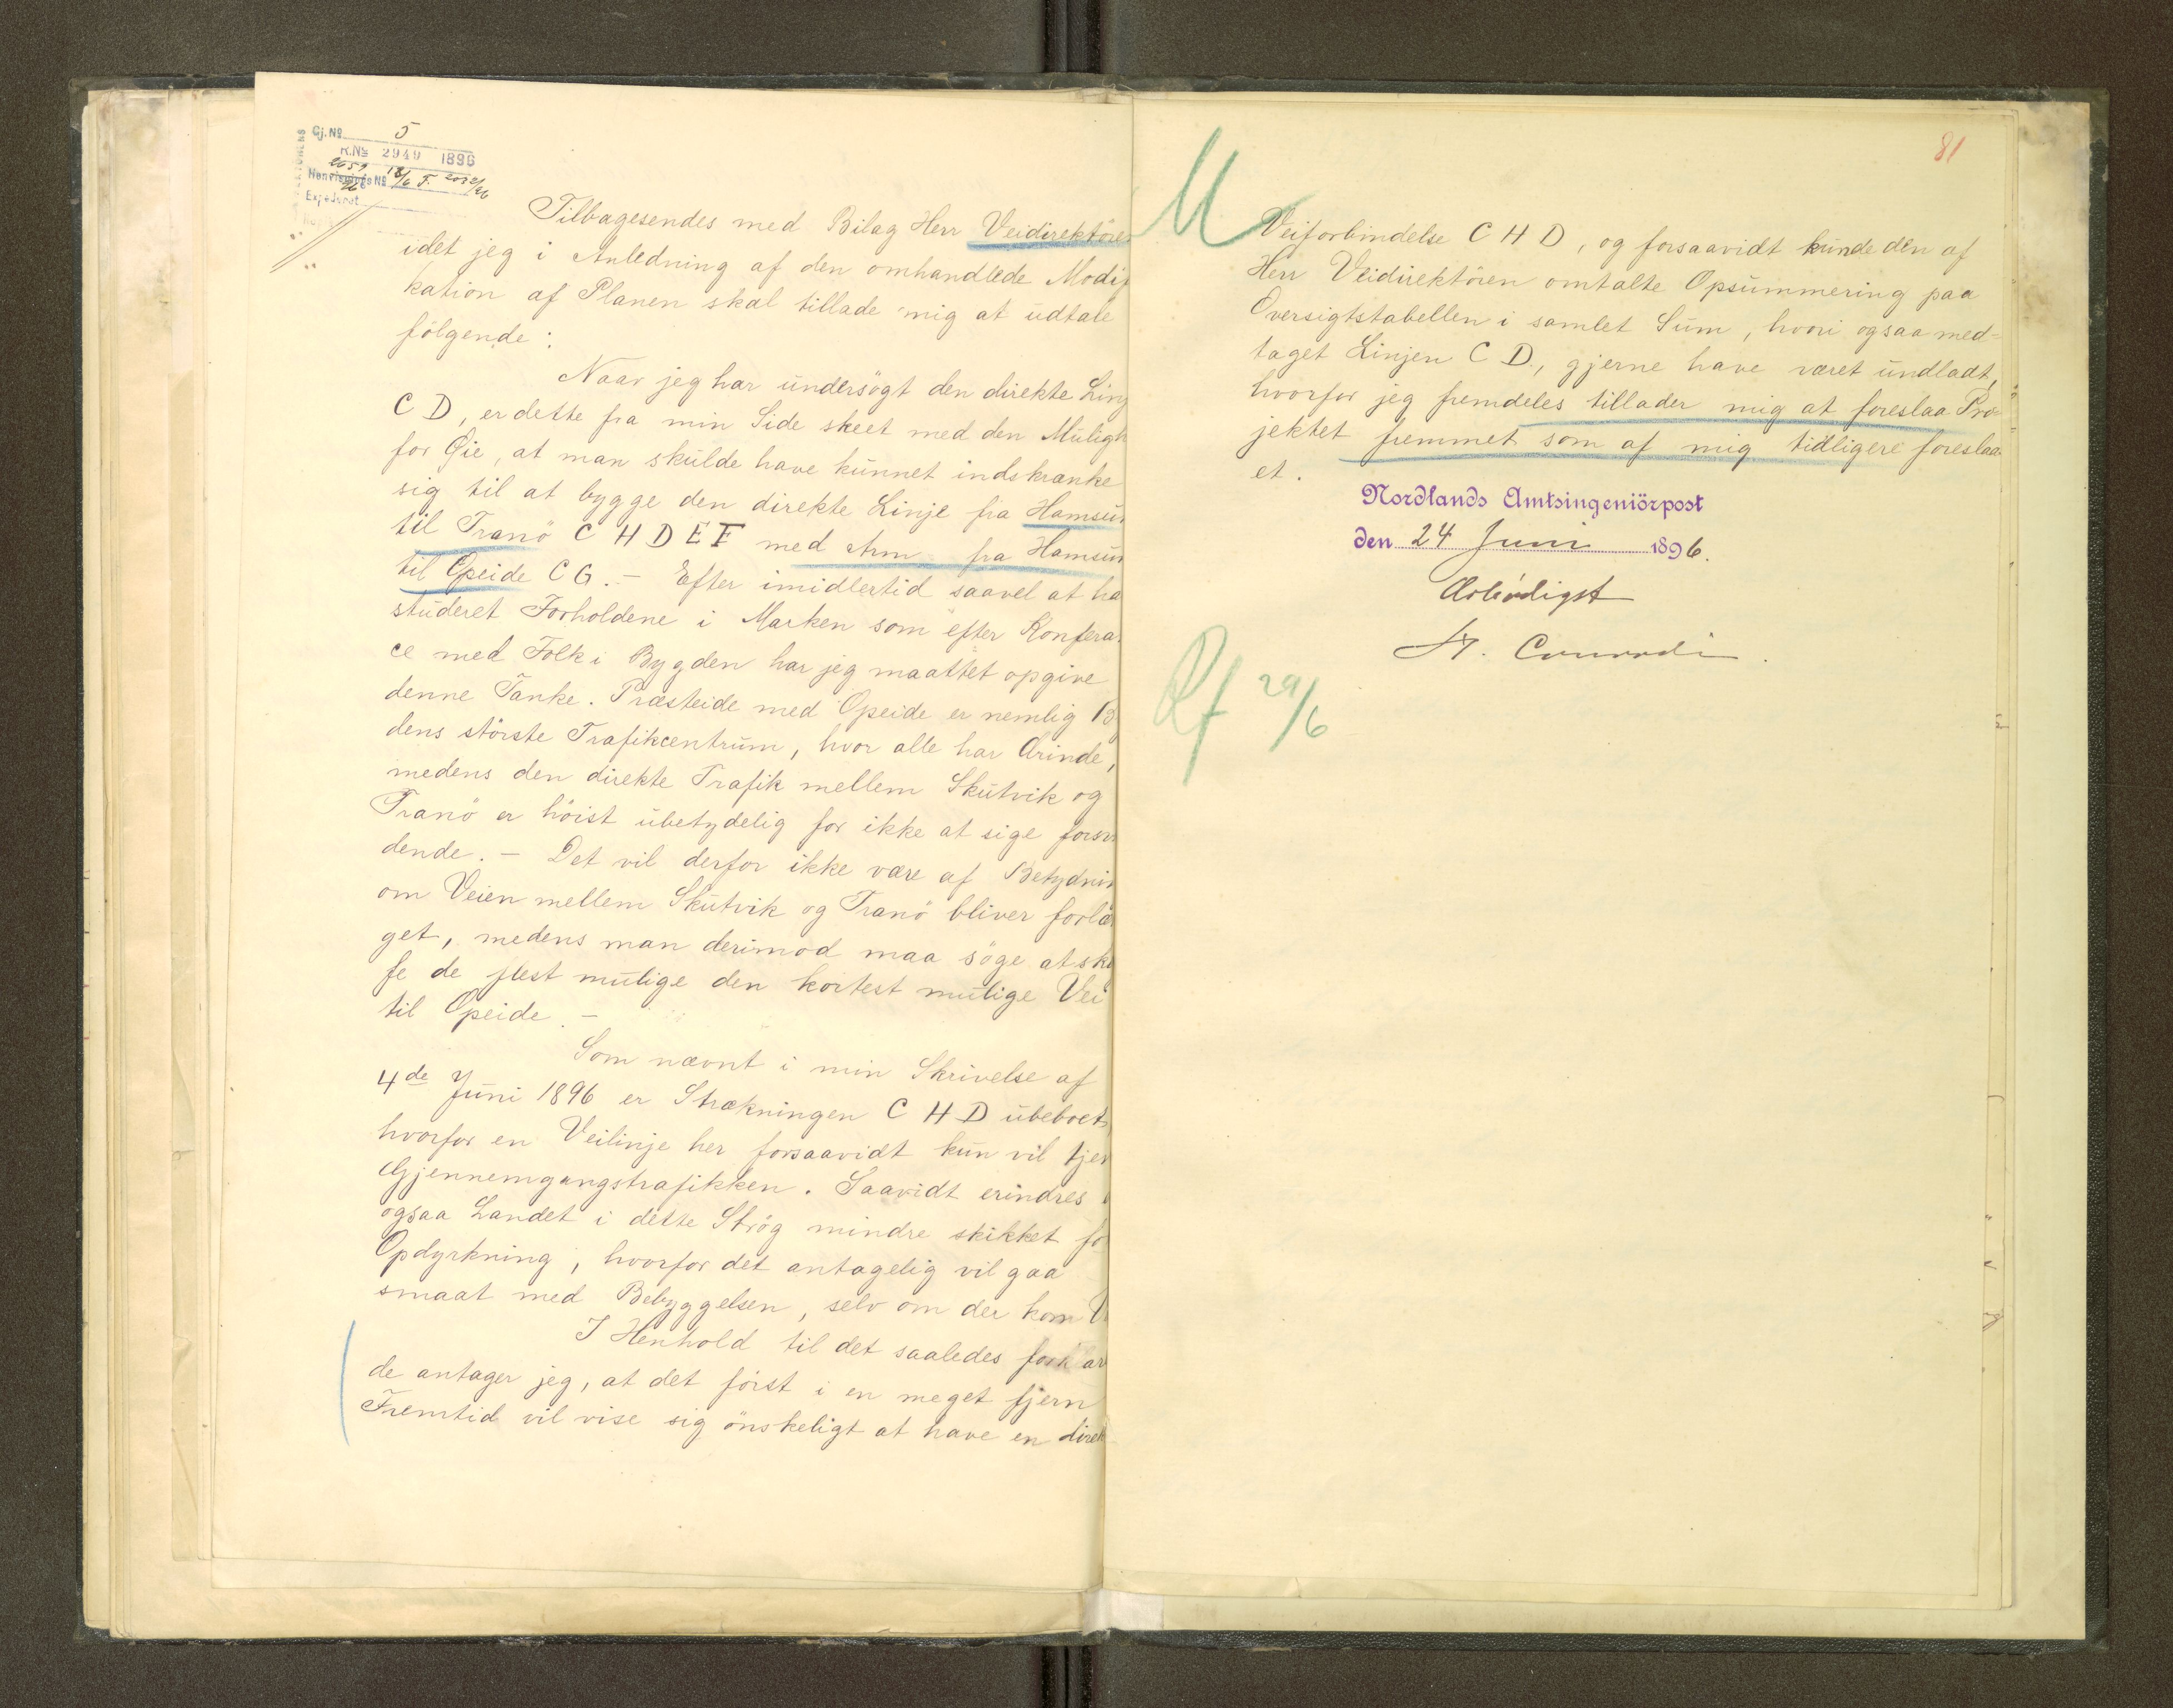 Gj. No 5
R.No 2949 1896
Henvisnings No
Expederet
Tilbagesendes med Bilag Herr Veidirektöre
idet jeg i Anledning af den omhandlede Modif
kation af Planen skal tillade mig at udtale
fölgende:
Naar jeg har undersögt den direkte Linj
C D, er dette fra min Side skeet med den Muligh
for Öie, at man skulde have kunnet indskrænke
sig til at bygge den direkte Linje fra Hamsun
til Tranö C H D E F med Arm fra Hamsun
til Opeide C G. - Efter imidlertid saavel at ha
studeret Forholdene i Marken som efter Konfera
ce med Folk i Bygden har jeg maattet opgive
denne Tanke. Præsteide med Opeide er nemlig By
dens störste Trafikcentrum, hvor alle har Ærinde,
medens den direkte Trafik mellem Skutvik og
Tranö er höist ubetydelig for ikke at sige forsvi
dende. - Det vil derfor ikke være af Betydnin
om Veien mellem Skutvik og Tranö bliver forlæn
get, medens man derimod maa söge at ska
fe de flest mulige den kortest mulige Vei
til Opeide. -
Som nævnt i min Skrivelse af
4de Juni 1896 er Strækningen C H D ubeboet,
hvorfor en Veilinje her forsaavidt kun vil tjen
Gjennemgangstrafikken. Saavidt erindres
ogsaa Landet i dette Strög mindre skikket fo
Opdyrkning, hvorfor det antagelig vil gaa
smaat med Bebyggelsen, selv om der kom V
I Henhold til det saaledes forklar
de antager jeg, at det först i en meget fjern
Fremtid vil vise sig önskeligt at have en direk
81
M
Veiforbindelse C H D, og forsaavidt kunde den af
Herr Veidirektören omtalte Opsummering paa
Oversigtstabellen i samlet Sum, hvori ogsaa med-
taget Linjen C D., gjerne have været undladt,
hvorfor jeg fremdeles tillader mig at foreslaa Pro-
jektet fremmet som af mig tidligere foreslaa-
et.
Nordlands Amtsingeniörpost
den 24 Juni 1896.
Ærbödigst
29/6